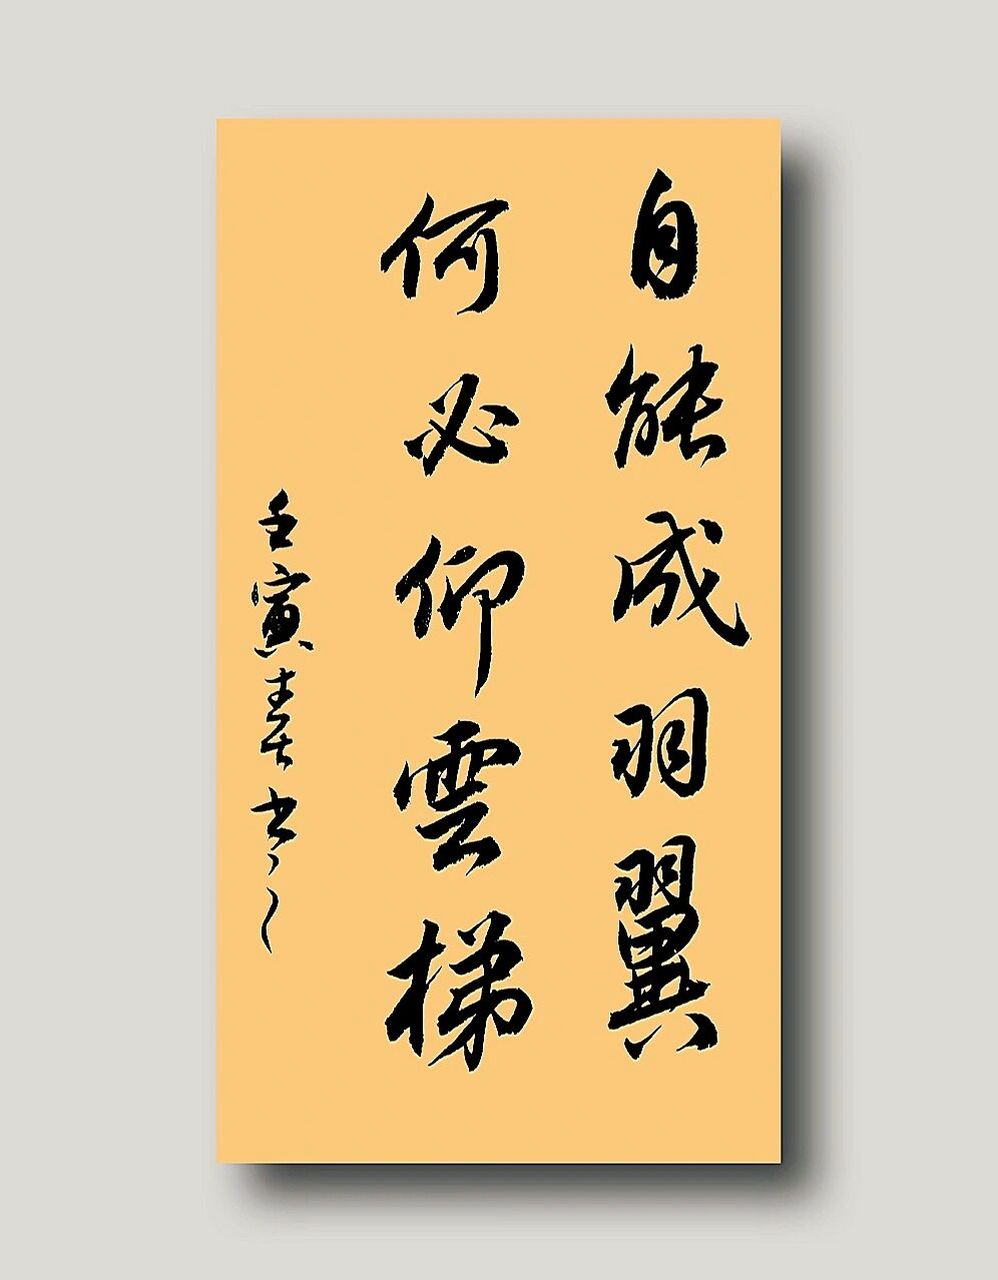 自能成羽翼
何必仰雲梯
壬寅春